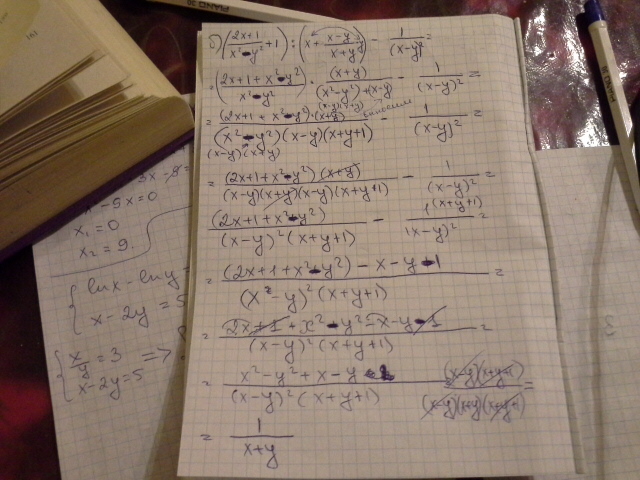 б) (2x+1 / x²-y² + 1) : (x + x-y / x+y) - 1 / (x-y)² =
(2x+1+x²-y² / x²-y²) · (x+y) / (x²-y²)+x-y - 1 / (x-y)² =
= (2x+1+x²-y²)·(x+y) / (x²-y²)(x-y)(x+y+1) - 1 / (x-y)² =
(x-y)(x+y)
= (2x+1+x²-y²)(x+y) / (x-y)(x+y)(x-y)(x+y+1) - 1 / (x-y)² =
(2x+1+x²-y²) / (x-y)²(x+y+1) - 1(x+y+1) / (x-y)² =
= (2x+1+x²-y²) - x-y-1 / (x²-y)²(x+y+1) =
= 2x+1+x²-y²-x-y-1 / (x-y)²(x+y+1) =
= x²-y²+x-y / (x-y)²(x+y+1) (x-y)(x+y+1) / (x-y)(x+y)(x+y+1) =
= 1 / x+y
x₁=0
x₂=9.
lnx-lny=
x-2y=5
x/y=3 =>
x-2y=5